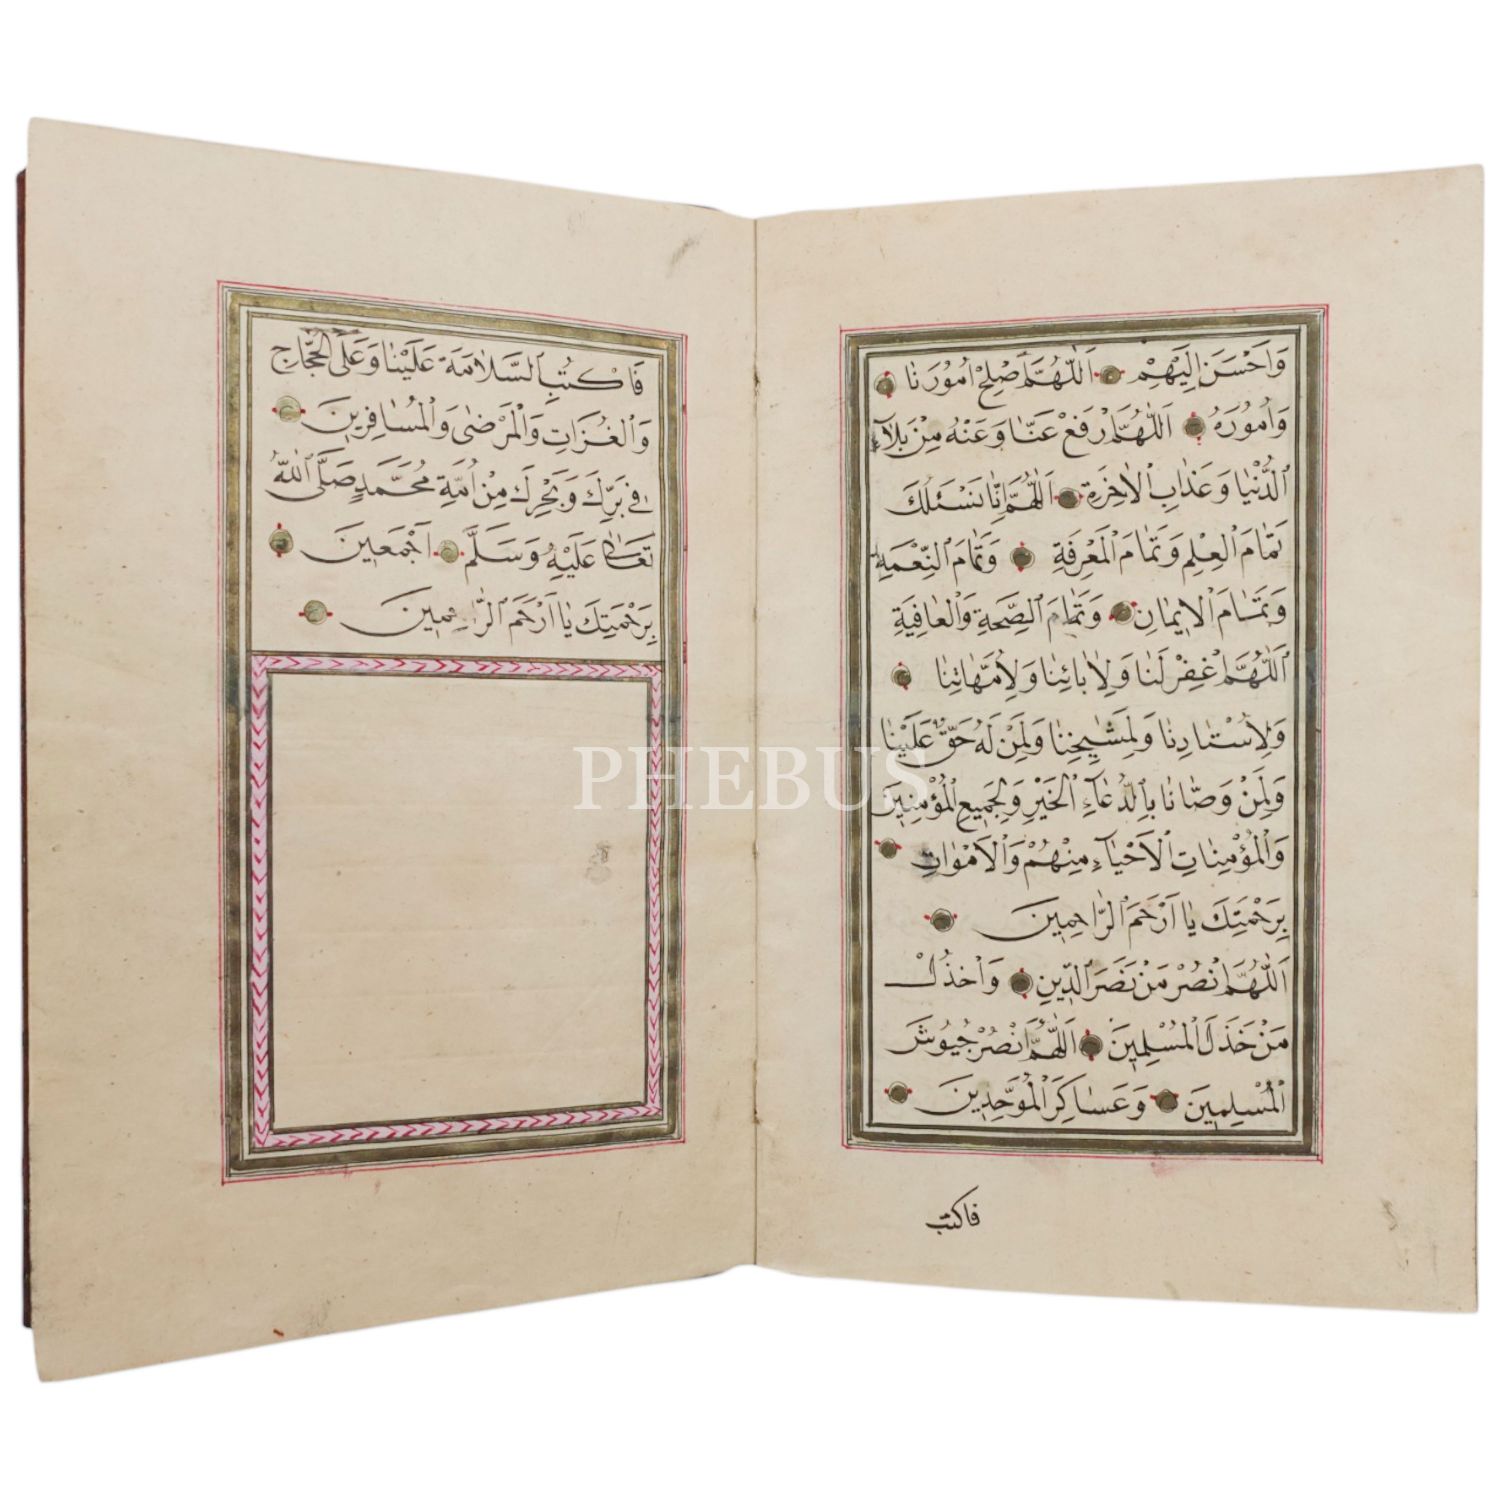 وَاَحْسَنَ اِلَيْهِمْ اَللّٰهُمَّ اَصْلِحْ اُمُورَنَا
وَاُمُورَهُ اَللّٰهُمَّ ارْفَعْ عَنَّا وَعَنْهُ مِنْ بَلَآءِ
الدُّنْيَا وَعَذَابِ الْاٰخِرَةِ اَللّٰهُمَّ اِنَّا نَسْئَلُكَ
تَمَامَ الْعِلْمِ وَتَمَامَ الْمَعْرِفَةِ وَتَمَامَ النِّعْمَةِ
وَتَمَامَ الْاِيمَانِ وَتَمَامَ الصِّحَةِ وَالْعَافِيَةِ
اَللّٰهُمَّ اغْفِرْ لَنَا وَلِاٰبَائِنَا وَلِاُمَّهَاتِنَا
وَلِاُسْتَادِنَا وَلِمَشَايِخِنَا وَلِمَنْ لَهُ حَقٌّ عَلَيْنَا
وَلِمَنْ وَصَّانَا بِالدُّعَآءِ الْخَيْرِ وَلِجَمِيعِ الْمُؤْمِنِينَ
وَالْمُؤْمِنَاتِ الْاَحْيَآءِ مِنْهُمْ وَالْاَمْوَاتِ
بِرَحْمَتِكَ يَا اَرْحَمَ الرَّاحِمِينَ
اَللّٰهُمَّ انْصُرْ مَنْ نَصَرَ الدِّينِ وَاخْذُلْ
مَنْ خَذَلَ الْمُسْلِمِينَ اَللّٰهُمَّ انْصُرْ جُيُوشَ
الْمُسْلِمِينَ وَعَسَاكِرَ الْمُوَحِّدِينَ
فاكتب
فَاكْتُبِ السَّلَامَةَ عَلَيْنَا وَعَلَى الْحُجَّاجِ
وَالْغُزَاتِ وَالْمَرْضٰى وَالْمُسَافِرِينَ
فِي بَرِّكَ وَبَحْرِكَ مِنْ اُمَّةِ مُحَمَّدٍ صَلَّى اللّٰهُ
تَعَالٰى عَلَيْهِ وَسَلَّمَ اَجْمَعِينَ
بِرَحْمَتِكَ يَا اَرْحَمَ الرَّاحِمِينَ
PHEBUS